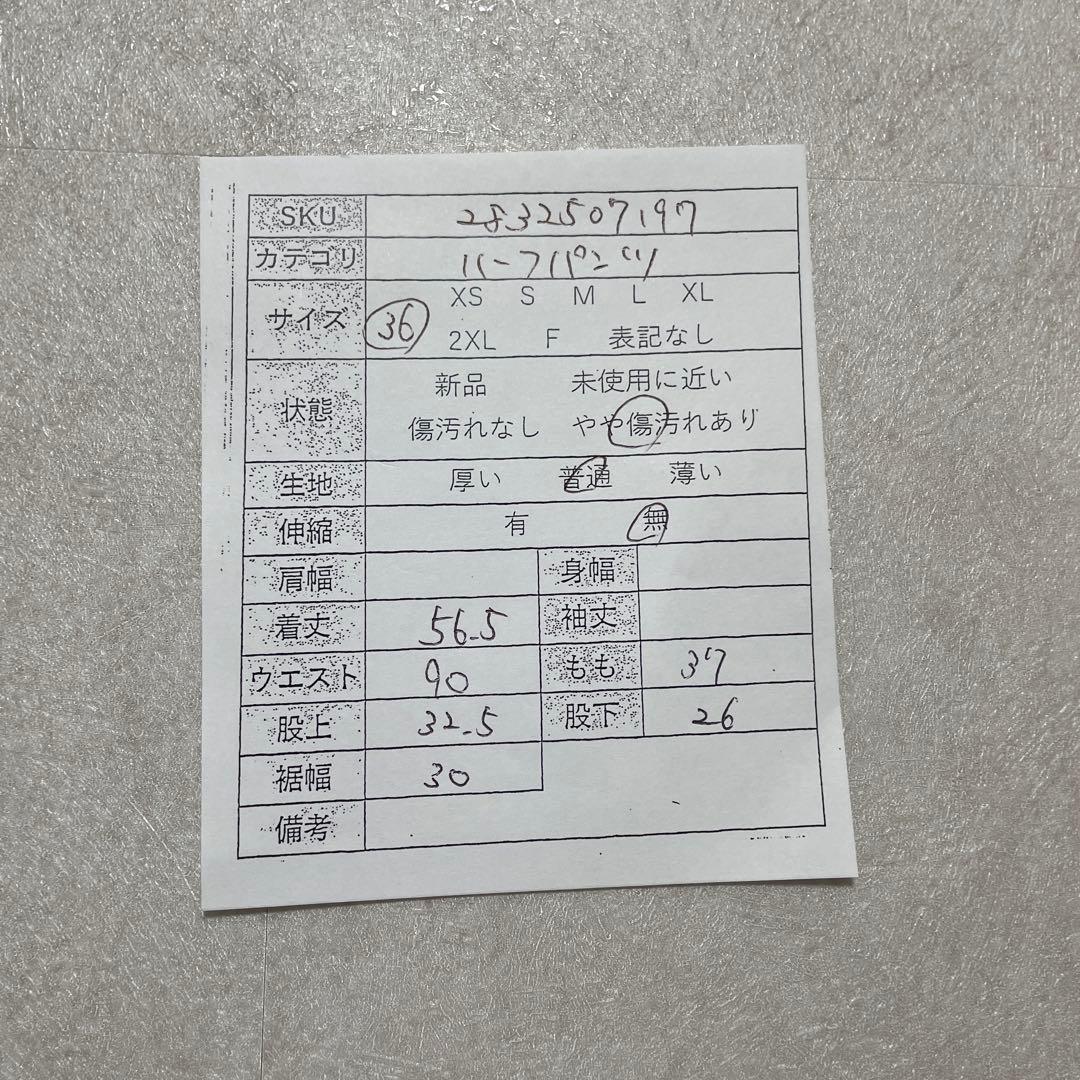 SKU 2832507197
カテゴリ ハーフパンツ
サイズ 36 XS S M L XL
2XL F 表記なし
状態 新品 未使用に近い
傷汚れなし やや傷汚れあり
生地 厚い 普通 薄い
伸縮 有 無
肩幅 身幅
着丈 56.5 袖丈
ウエスト 90 もも 37
股上 32.5 股下 26
裾幅 30
備考